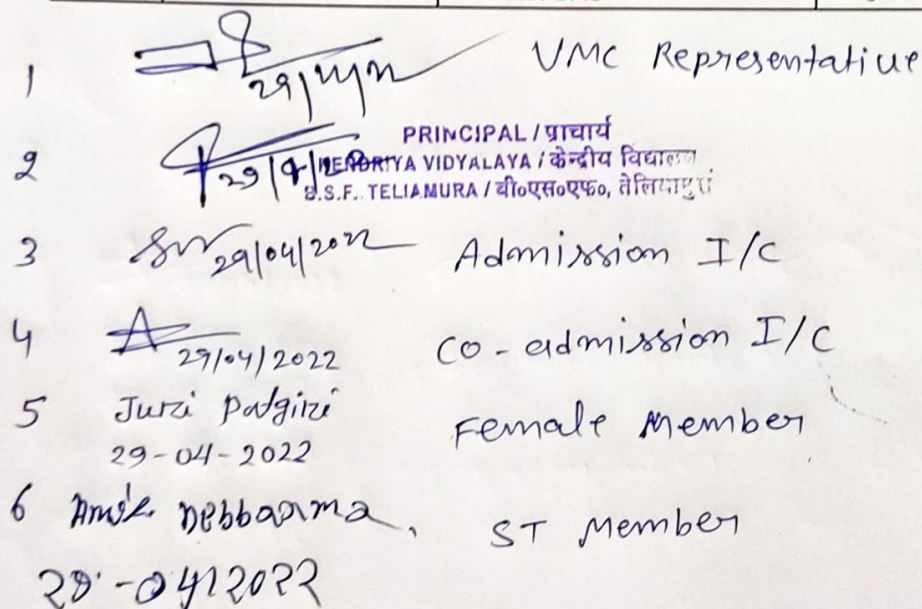 1 VMC Representative
2 29/4/
PRINCIPAL / प्राचार्य
KENDRIYA VIDYALAYA / केन्द्रीय विद्यालय
B.S.F. TELIAMURA / बी०एस०एफ०, तेलियामुरा
3 29/04/2022 Admission I/C
4 29/04/2022 Co-admission I/C
5 Juri Patgiri Female Member
29-04-2022
6 Debbarma, ST Member
04/2022